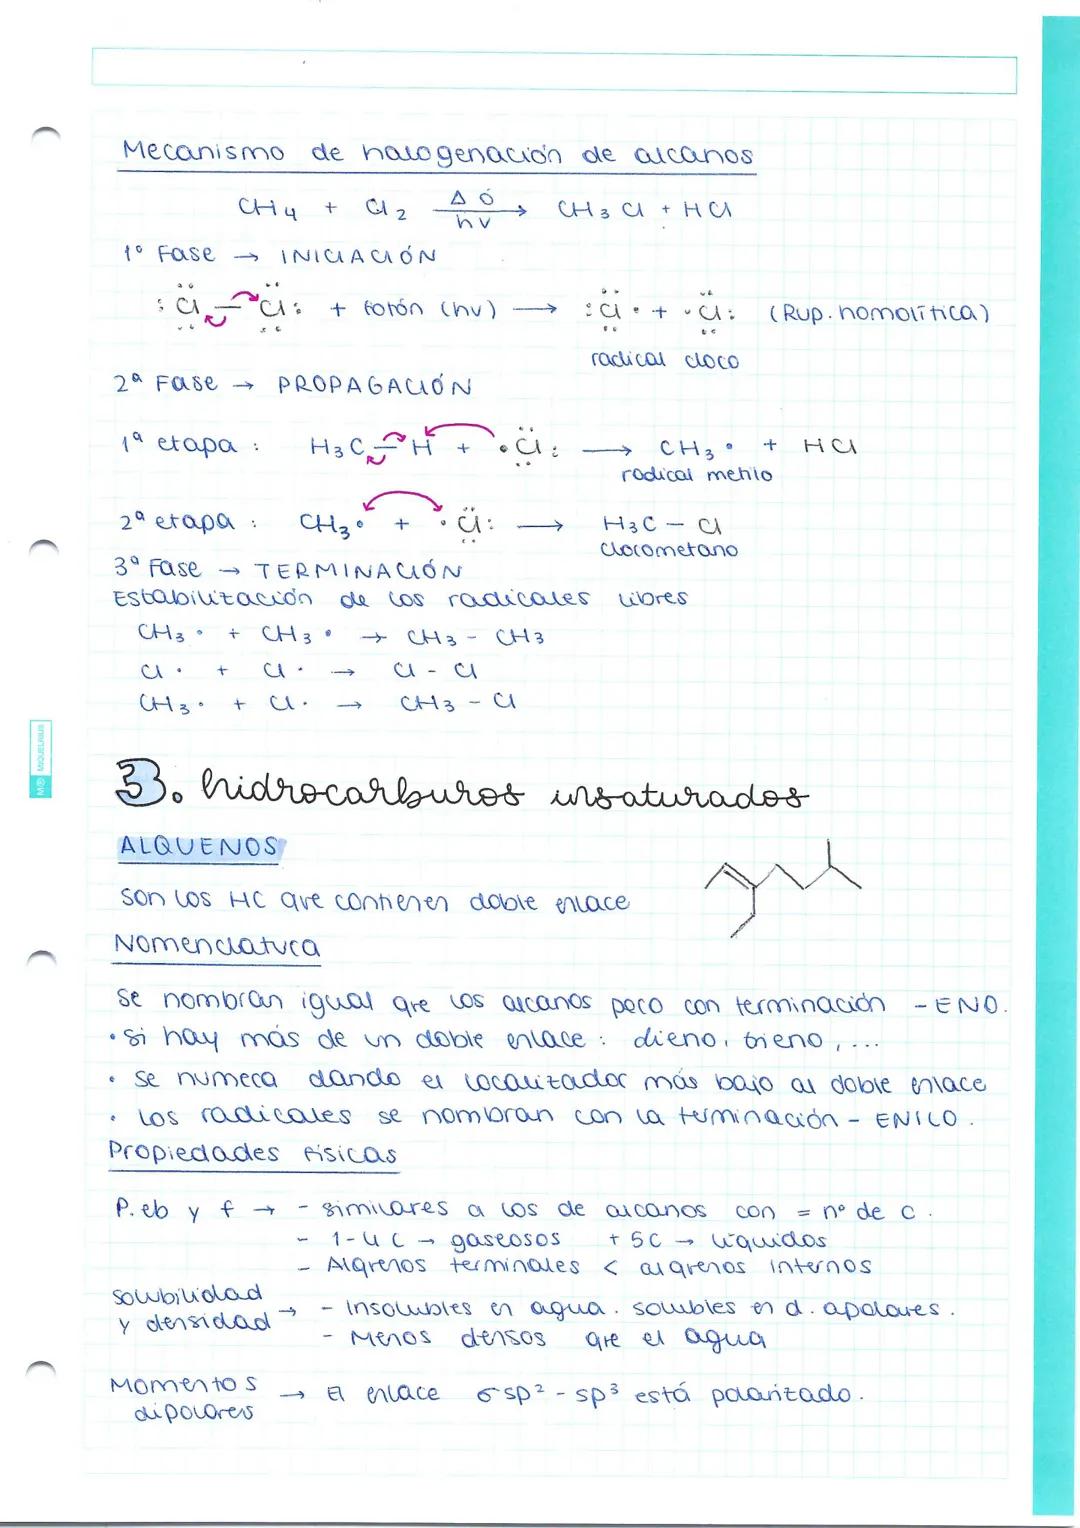 Mecanismo de halogenación de alcanos
CH4 + Cl2 Δ ó hν → CH3Cl + HCl
1º Fase → INICIACIÓN
:Cl — Cl: + fotón (hν) → :Cl· + ·Cl: (Rup. homolítica)
radical cloro
2ª Fase → PROPAGACIÓN
1ª etapa: H3C — H + ·Cl: → CH3· + HCl
radical metilo
2ª etapa: CH3· + ·Cl: → H3C - Cl
clorometano
3ª Fase → TERMINACIÓN
Estabilización de los radicales libres
CH3· + CH3· → CH3 - CH3
Cl· + Cl· → Cl - Cl
CH3· + Cl· → CH3 - Cl
MR MIQUELRIUS
3. hidrocarburos insaturados
ALQUENOS
Son los HC que contienen doble enlace
Nomenclatura
Se nombran igual que los alcanos pero con terminación -ENO.
• Si hay más de un doble enlace: dieno, trieno, ...
• Se numera dando el localizador más bajo al doble enlace
• Los radicales se nombran con la terminación - ENILO.
Propiedades físicas
P. eb y f → - similares a los de alcanos con = nº de C.
- 1-4 C → gaseosos + 5C → líquidos
- Alquenos terminales < alquenos internos
Solubilidad y densidad → - Insolubles en agua. solubles en d. apolares.
- Menos densos que el agua
Momentos dipolares → El enlace σ sp² - sp³ está polarizado.